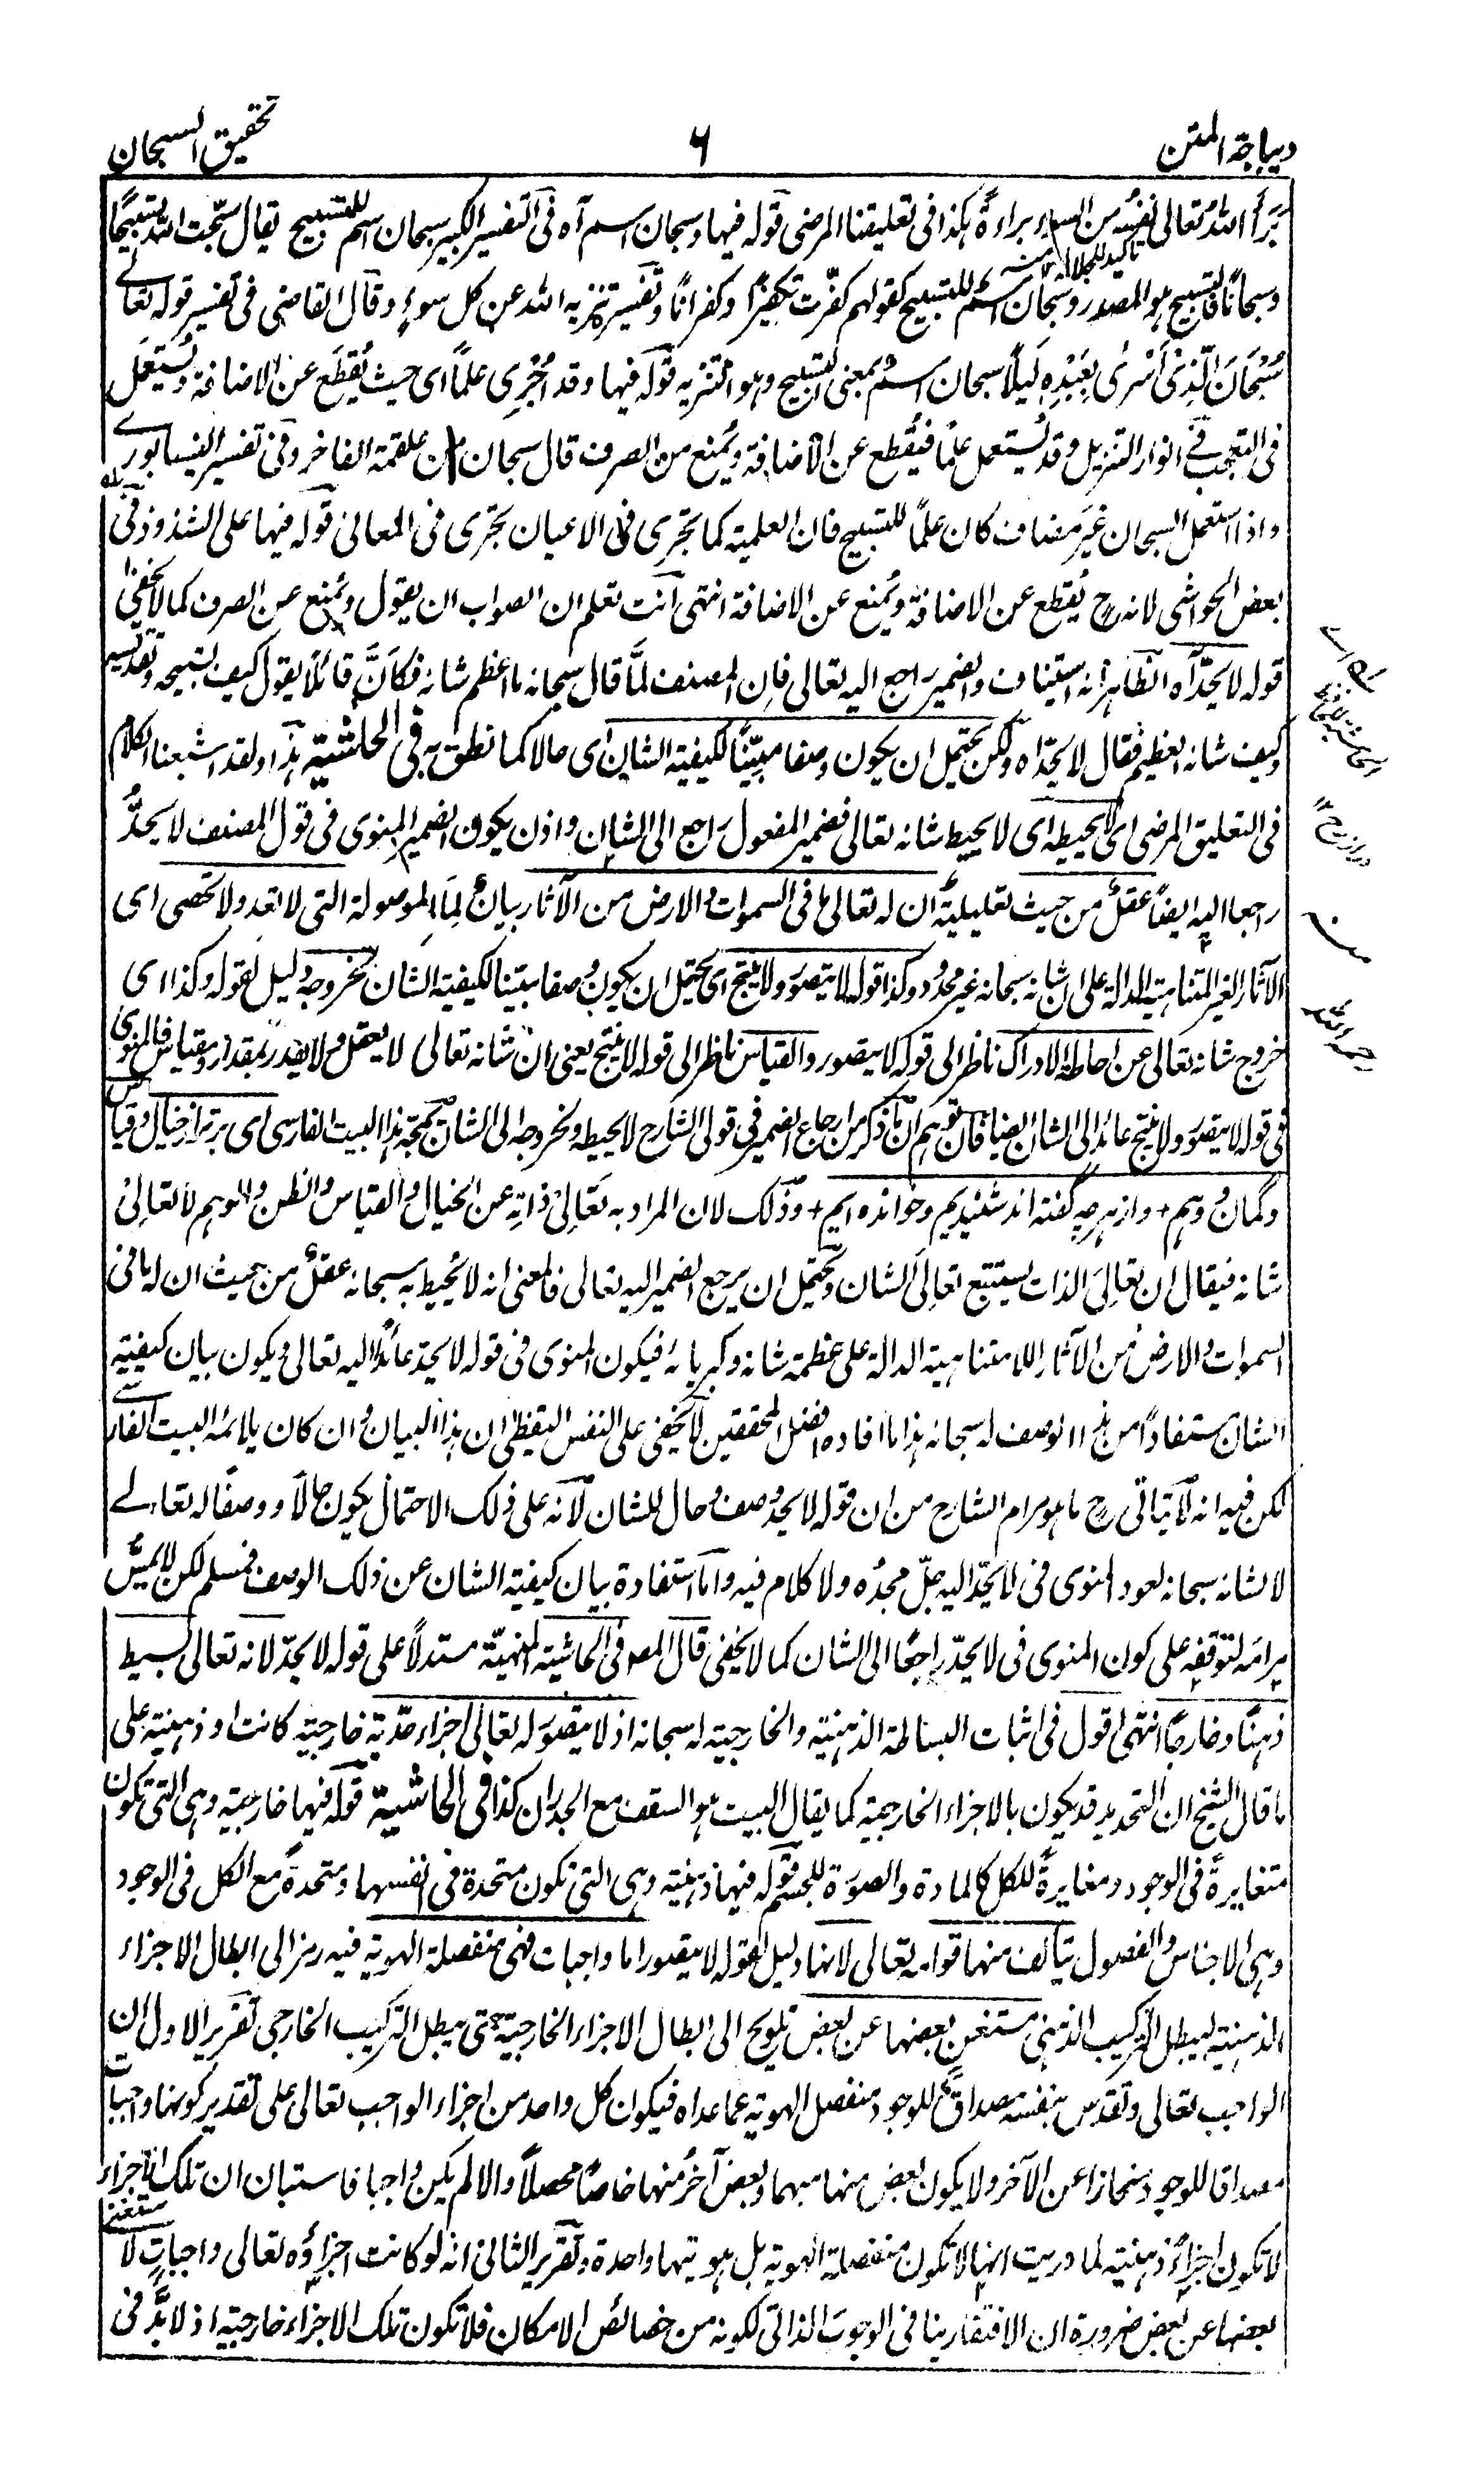 ديباجة المتن
٦
تحقيق السبحان
بَرَأَ اللهُ تعالى نفسَه من السوء براءةً هكذا فى تعليقنا المرضى قوله فيها وسبحان اسم آه فى التفسير الكبير سبحان اسم للتسبيح يقال سبحت الله تسبيحًا
وسبحانًا فالتسبيح هو المصدر وسبحان اسم للتسبيح كقولهم كفّرت تكفيرًا وكفرانًا وتفسيره تنزيه الله عن كل سوءٍ وقال القاضى فى تفسير قوله تعالى
سُبْحَانَ الَّذِىْ أَسْرٰى بِعَبْدِهٖ لَيْلًا سبحان اسم بمعنى التسبيح وهو التنزيه قوله فيها وقد أُجْرِى علمًا اى حيث يُقطَع عن الاضافة ويُستعمَل
فى التعجب فى انوار التنزيل وقد يُستعمل علمًا فيُقطع عن الاضافة ويُمنع من الصرف قال سبحان من علقمة الفاخر وفى تفسير النيسابورى
واذا استعمل السبحان غيرَ مضاف كان علمًا للتسبيح فان العلمية كما تجرى فى الاعيان تجرى فى المعانى قوله فيها على الشذوذ فى
بعض الحواشى لانه ح يُقطع عن الاضافة ويُمنع عن الاضافة انتهى انت تعلم ان الصواب ان يقول ويُمنع عن الصرف كما لا يخفى
قوله لا يحدّ آه الظاهر انه استيناف والضمير راجع اليه تعالى فان المصنف لمَّا قال سبحانه ما اعظم شانه فكأنَّ قائلًا يقول كيف تسبيحه وتقديسه
وكيف شانه العظيم فقال لا يحدّ آه ولكن يحتمل ان يكون وصفا مبيّنًا لكيفية الشان اى حالا كما نطق به فى الحاشية هذا ولقد اشبعنا الكلام
فى التعليق المرضى اى لا يحيطه اى لا يحيط شانه تعالى فضمير المفعول راجع الى الشان واذن يكون الضمير المنوى فى قول المصنف لا يحدُّ
راجعا اليه ايضًا عقلٌ من حيث تعليلية ان له تعالى ما فى السموات والارض من الآثار بيان لِمَا الموصولة التى لا تعد ولا تحصى اى
الآثار الغير المتناهية الدالة على ان شانه سبحانه غير محدود وكذا قوله لا يتصوّر ولا ينتج اى يحتمل ان يكون وصفا مبيّنا لكيفية الشان لخروجه دليل لقوله وكذا اى
خروج شانه تعالى عن احاطة الادراك ناظر الى قوله لا يتصور والقياس ناظر الى قوله لا ينتج يعنى ان شانه تعالى لا يعقل ولا يقدر بمقدار ومقياس فالمنوى
فى قوله لا يتصوّر ولا ينتج عائد الى الشان ايضًا فان توهم ان ما ذكر من ارجاع الضمير فى قولى الشارح لا يحيطه ولخروجه الى الشان يمجّه هذا البيت الفارسى اى برتر از خيال و قياس
و گمان و وهم + و از هر چه گفته اند شنيديم و خوانده ايم + وذلك لان المراد به تعالىْ ذاتِه عن الخيال والقياس والظن والوهم لا تعالىْ
شانه فيقال ان تعالِىَ الذات يستتبع تعالِىَ الشان ويحتمل ان يرجع الضمير اليه تعالى فالمعنى انه لا يُحيط به سبحانه عقلٌ من حيث ان له ما فى
السموات والارض من الآثار اللامتناهية الدالة على عظمة شانه وكبريائه فيكون المنوى فى قوله لا يحدّ عائدًا اليه تعالى ويكون بيان كيفية
الشان مستفادًا من هذا الوصف له سبحانه هذا ما افاده افضل المحققين لا يخفى على النفس اليقظى ان هذا البيان وان كان يلائمه البيت الفارسى
لكن فيه انه لا يتاتى ح ما هو مرام الشارح من ان قوله لا يحد وصف وحال للشان لانه على ذلك الاحتمال يكون حالًا ووصفًا له تعالى
لا لشانه سبحانه لعود المنوى فى لا يحدّ اليه جلّ مجدُه ولا كلام فيه واما استفادة بيان كيفية الشان عن ذلك الوصف فمسلم لكن لا يمسّ
مرامَه لتوقفِه على كون المنوى فى لا يحدّ راجعًا الى الشان كما لا يخفى قال المصـ فى الحاشية المنهيّة مستدلًا على قوله لا يحدّ لانه تعالى بسيط
ذهنًا وخارجًا انتهى اقول فى اثبات البساطة الذهنية والخارجية له سبحانه اذ لا يتصوّر له تعالى اجزاء حدّية خارجية كانت او ذهنية على
ما قال الشيخ ان التحديد قد يكون بالاجزاء الخارجية كما يقال البيت هو السقف مع الجدران كذا فى الحاشية قوله فيها خارجية وهى التى تكون
متغايرةً فى الوجود ومغايرةً للكل كالمادة والصورة للجسم قوله فيها ذهنية وهى التى تكون متحدة فى انفسها ومتحدةً مع الكل فى الوجود
وهى الاجناس والفصول يتألف منها قوامه تعالى لانها دليل لقوله لا يتصور اما واجبات فهى منفصلة الهوية فيه رمز الى ابطال الاجزاء
الذهنية ليبطل التركيب الذهنى مستغنٍ بعضها عن بعض تلويح الى ابطال الاجزاء الخارجية حتى يبطل التركيب الخارجى تقرير الاول ان
الواجب تعالى وتقدس بنفسه مصداقٌ للوجود منفصل الهوية عما عداه فيكون كل واحد من اجزاء الواجب تعالى على تقدير كونها واجبات
مصداقا للوجود منحازا عن الآخر ولا يكون بعض منها مبهما وبعض آخرُ منها خاصًّا محصلًا والا لم يكن واجبا فاستبان ان تلك الاجزاء
لا تكون اجزاءً ذهنية لما دريت انها لا تكون منفصلة الهوية بل هويتها واحدة وتقرير الثانى انه لو كانت اجزاؤه تعالى واجباتٍ لا ستغنى
بعضها عن بعض ضرورة ان الافتقار ينافى الوجوبَ الذاتى لكونه من خصائص الامكان فلا تكون تلك الاجزاء خارجية اذ لا بُدَّ فى
رحمه الله